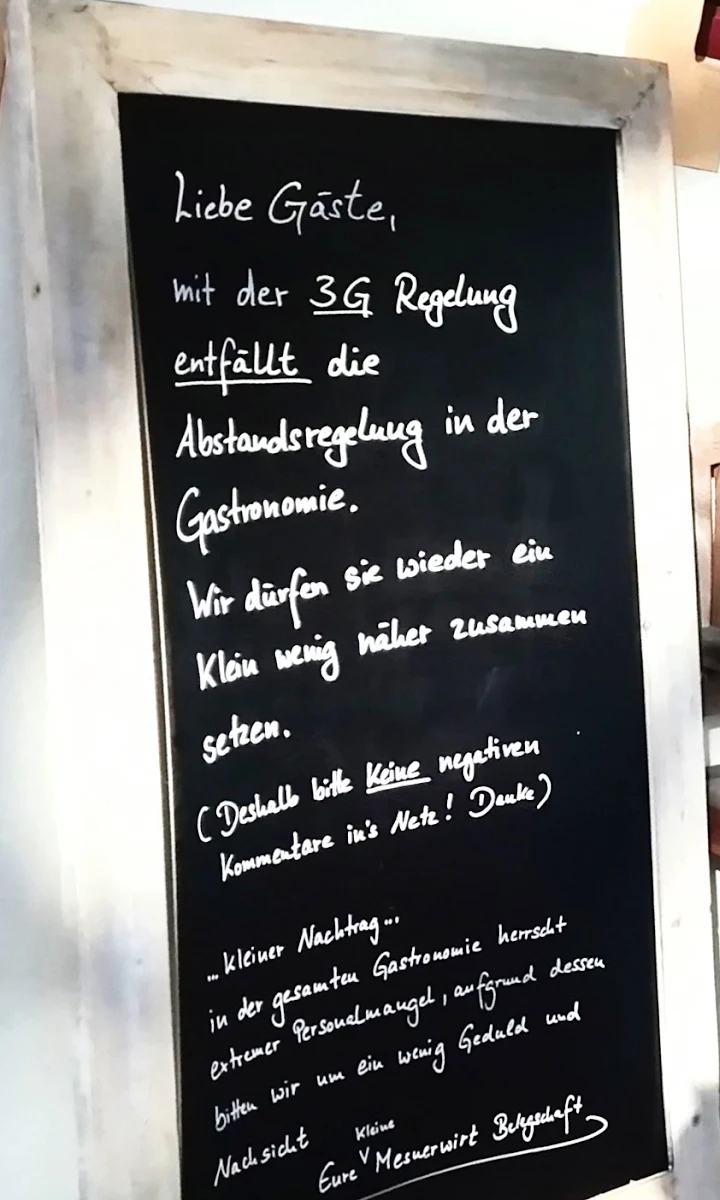 Liebe Gäste,
mit der 3G Regelung
entfällt die
Abstandsregelung in der
Gastronomie.
Wir dürfen sie wieder ein
Klein wenig näher zusammen
setzen.
(Deshalb bitte Keine negativen
Kommentare in's Netz! Danke)
...kleiner Nachtrag...
in der gesamten Gastronomie herrscht
extremer Personalmangel, aufgrund dessen
bitten wir um ein wenig Geduld und
Nachsicht
Eure Kleine Mesnerwirt Belegschaft